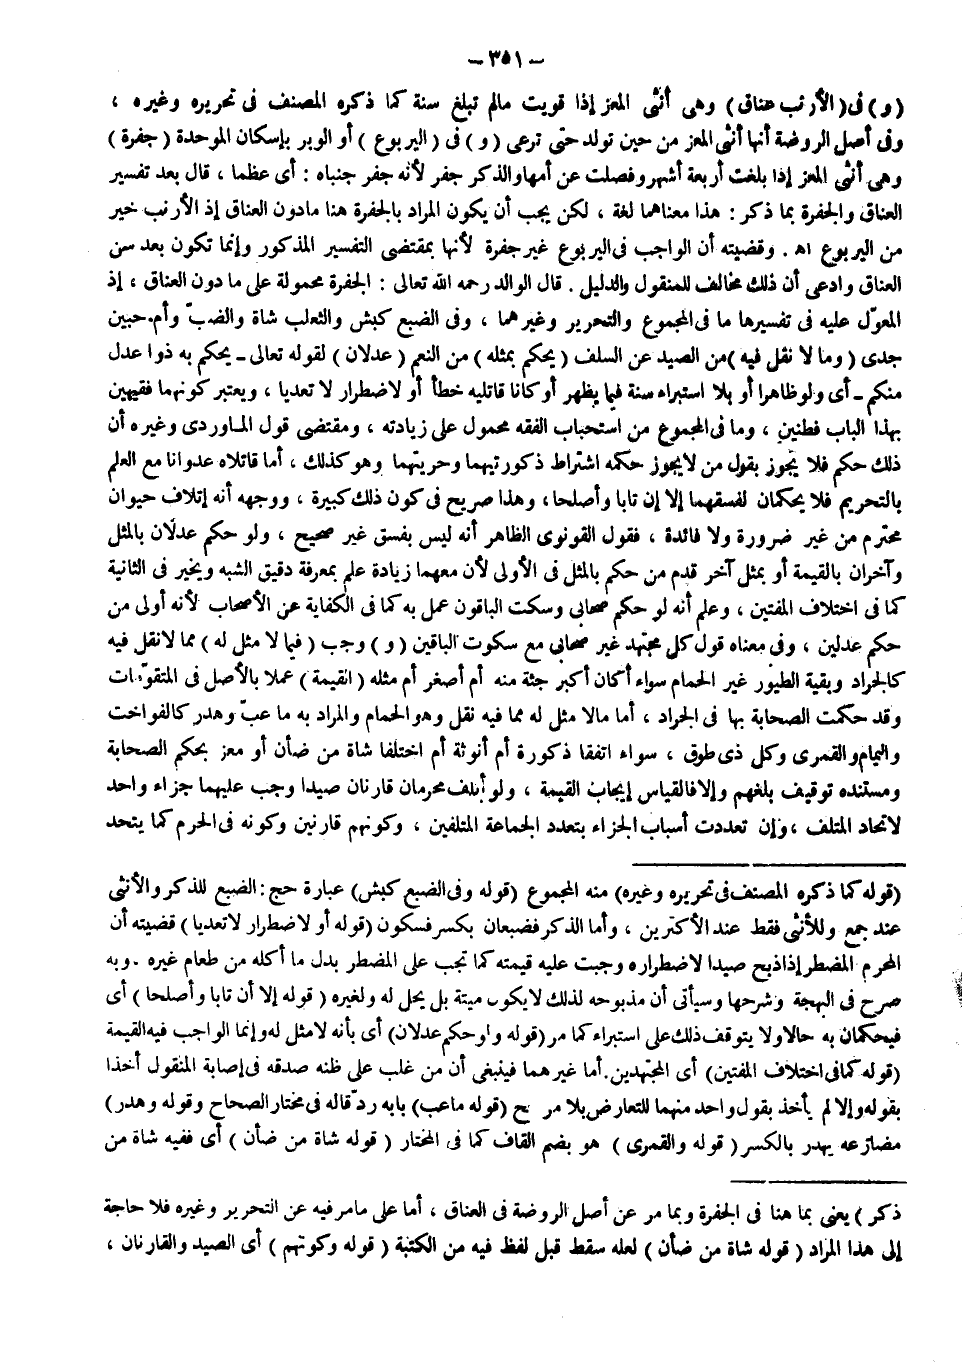 — ٣٥١ —
(و) فى (الأرنب عناق) وهى أنثى المعز إذا قويت مالم تبلغ سنة كما ذكره المصنف فى تحريره وغيره ،
وفى أصل الروضة أنها أنثى المعز من حين تولد حتى ترعى (و) فى (اليربوع) أو الوبر بإسكان الموحدة (جفرة)
وهى أنثى المعز إذا بلغت أربعة أشهر وفصلت عن أمها والذكر جفر لأنه جفر جنباه : أى عظما ، قال بعد تفسير
العناق والجفرة بما ذكر : هذا معناهما لغة ، لكن يجب أن يكون المراد بالجفرة هنا مادون العناق إذ الأرنب خير
من اليربوع اه . وقضيته أن الواجب فى اليربوع غير جفرة لأنها بمقتضى التفسير المذكور وإنما تكون بعد سن
العناق وادعى أن ذلك مخالف للمنقول والدليل . قال الوالد رحمه الله تعالى : الجفرة محمولة على ما دون العناق ، إذ
المعوّل عليه فى تفسيرها ما فى المجموع والتحرير وغيرهما ، وفى الضبع كبش والثعلب شاة والضبّ وأم حبين
جدى (وما لا نقل فيه) من الصيد عن السلف (يحكم بمثله) من النعم (عدلان) لقوله تعالى ـ يحكم به ذوا عدل
منكم ـ أى ولو ظاهرا أو بلا استبراء سنة فيما يظهر أو كانا قاتليه خطأ أو لاضطرار لا تعديا ، ويعتبر كونهما فقيهين
بهذا الباب فطنين ، وما فى المجموع من استحباب الفقه محمول على زيادته ، ومقتضى قول الماوردى وغيره أن
ذلك حكم فلا يجوز بقول من لايجوز حكمه اشتراط ذكورتيهما وحريتهما وهو كذلك ، أما قاتلاه عدوانا مع العلم
بالتحريم فلا يحكمان لفسقهما إلا إن تابا وأصلحا ، وهذا صريح فى كون ذلك كبيرة ، ووجهه أنه إتلاف حيوان
محترم من غير ضرورة ولا فائدة ، فقول القونوى الظاهر أنه ليس بفسق غير صحيح ، ولو حكم عدلان بالمثل
وآخران بالقيمة أو بمثل آخر قدم من حكم بالمثل فى الأولى لأن معهما زيادة علم بمعرفة دقيق الشبه ويخير فى الثانية
كما فى اختلاف المفتين ، وعلم أنه لو حكم صحابى وسكت الباقون عمل به كما فى الكفاية عن الأصحاب لأنه أولى من
حكم عدلين ، وفى معناه قول كل مجتهد غير صحابى مع سكوت الباقين (و) وجب (فيما لا مثل له) مما لانقل فيه
كالجراد وبقية الطيور غير الحمام سواء أكان أكبر جثة منه أم أصغر أم مثله (القيمة) عملا بالأصل فى المتقوّمات
وقد حكمت الصحابة بها فى الجراد ، أما مالا مثل له مما فيه نقل وهو الحمام والمراد به ما عبّ وهدر كالفواخت
واليمام والقمرى وكل ذى طوق ، سواء اتفقا ذكورة أم أنوثة أم اختلفا شاة من ضأن أو معز بحكم الصحابة
ومستنده توقيف بلغهم وإلا فالقياس إيجاب القيمة ، ولو أتلف محرمان قارنان صيدا وجب عليهما جزاء واحد
لاتحاد المتلف ، وإن تعددت أسباب الجزاء بتعدد الجماعة المتلفين ، وكونهم قارنين وكونه فى الحرم كما يتحد
(قوله كما ذكره المصنف فى تحريره وغيره) منه المجموع (قوله وفى الضبع كبش) عبارة حج : الضبع للذكر والأنثى
عند جمع وللأنثى فقط عند الأكثرين ، وأما الذكر فضبعان بكسر فسكون (قوله أو لاضطرار لاتعديا) قضيته أن
المحرم المضطر إذا ذبح صيدا لاضطراره وجبت عليه قيمته كما تجب على المضطر بدل ما أكله من طعام غيره . وبه
صرح فى البهجة وشرحها وسيأتى أن مذبوحه لذلك لايكون ميتة بل يحل له ولغيره (قوله إلا أن تابا وأصلحا) أى
فيحكمان به حالا ولا يتوقف ذلك على استبراء كما مر (قوله ولو حكم عدلان) أى بأنه لامثل له وإنما الواجب فيه القيمة
(قوله كما فى اختلاف المفتين) أى المجتهدين . أما غيرهما فينبغى أن من غلب على ظنه صدقه فى إصابة المنقول أخذا
بقوله وإلا لم يأخذ بقول واحد منهما للتعارض بلا مرجح (قوله ماعب) بابه ردّ قاله فى مختار الصحاح وقوله وهدر)
مضارعه يهدر بالكسر (قوله والقمرى) هو بضم القاف كما فى المختار (قوله شاة من ضأن) أى ففيه شاة من
ذكر) يعنى بما هنا فى الجفرة وبما مر عن أصل الروضة فى العناق ، أما على مامر فيه عن التحرير وغيره فلا حاجة
إلى هذا المراد (قوله شاة من ضأن) لعله سقط قبل لفظ فيه من الكتبة (قوله وكونهم) أى الصيد والقارنان ،